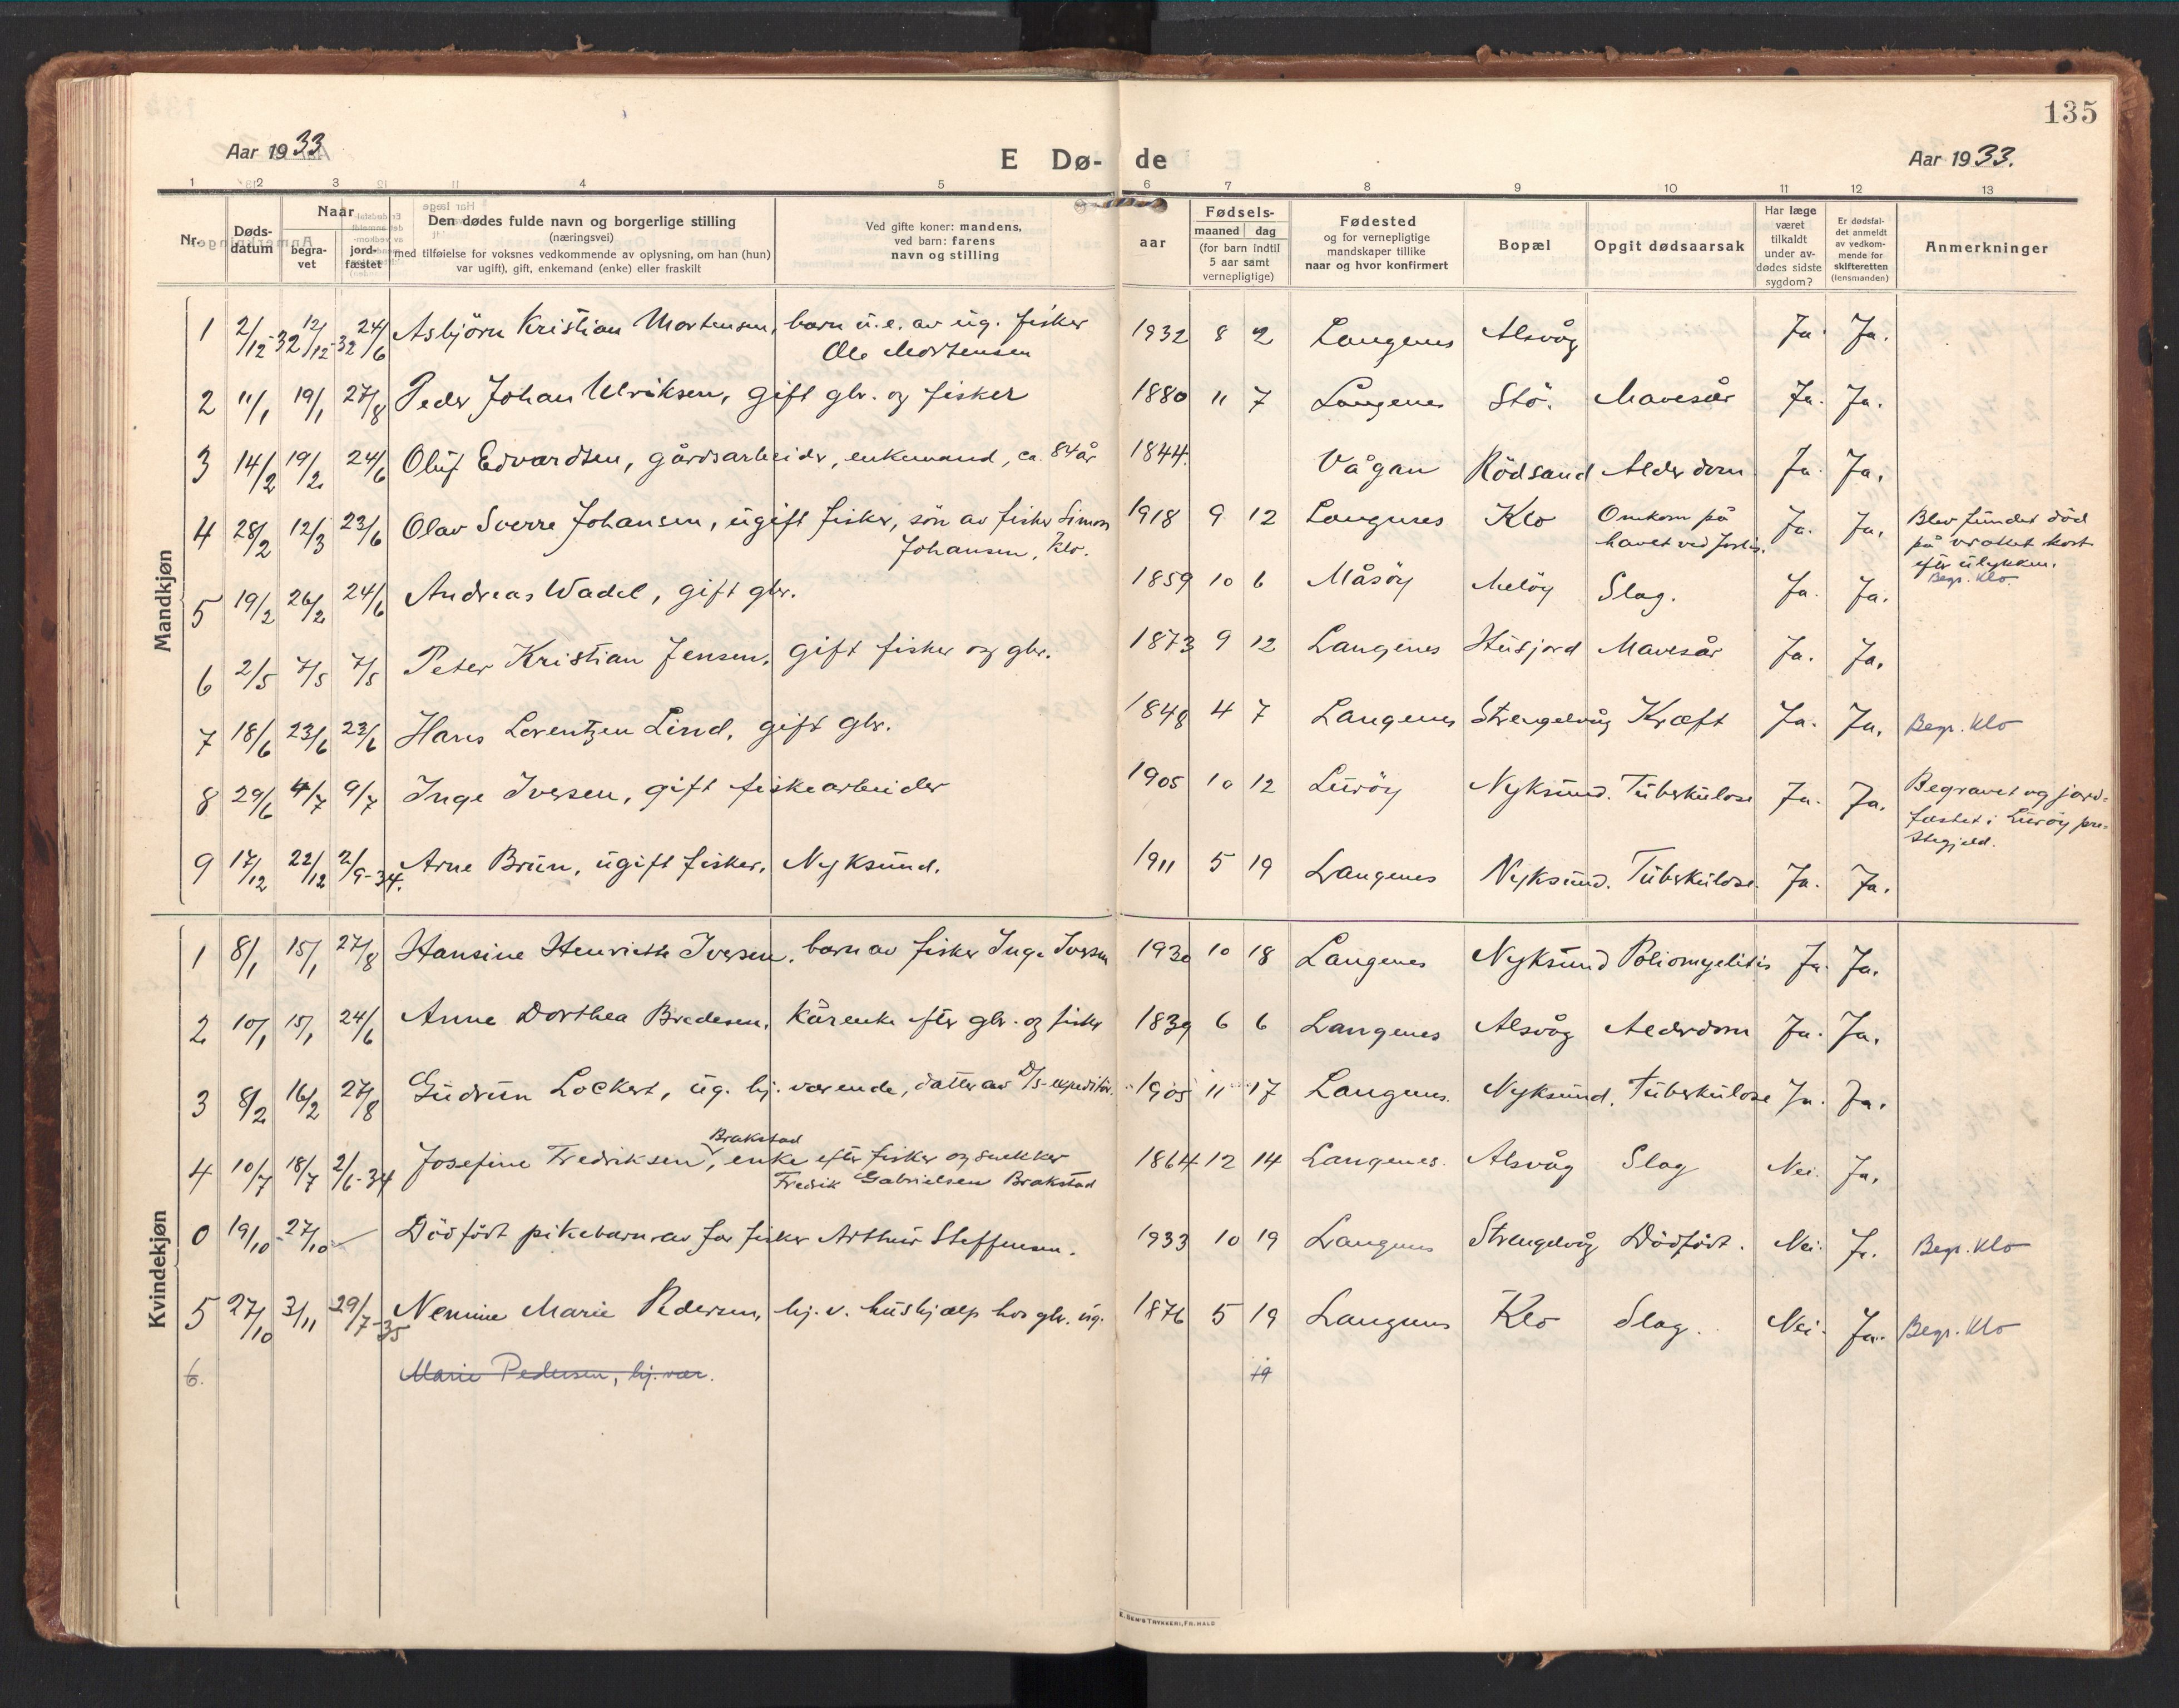 135
Aar 1933
E Dø-de
Aar 1933.
1 2 3 4 5 6 7 8 9 10 11 12 13
Nr. Døds-datum Naar begra-vet jord-fæstet Den dødes fulde navn og borgerlige stilling (næringsvei) med tilføielse for voksnes vedkommende av oplysning, om han (hun) var ugift), gift, enkemand (enke) eller fraskilt Ved gifte koner: mandens, ved barn: farens navn og stilling aar Fødsels- maaned dag (for barn indtil 5 aar samt vernepligtige) Fødested og for vernepligtige mandskaper tillike naar og hvor konfirmert Bopæl Opgit dødsaarsak Har læge været tilkaldt under av-dødes sidste sygdom? Er dødsfal-det anmeldt av vedkom-mende for skifteretten (lensmanden) Anmerkninger
Mandkjøn
1 2/12-32 12/12-32 24/6 Asbjörn Kristian Mortensen, barn u.e. av ug. fisker 1932 8 2 Langenes Alsvåg Ja. Ja.
Ole Mortensen
2 11/1 19/1 27/8 Peder Johan Ulriksen, gift gbr. og fisker 1880 11 7 Langenes Stö. Mavesår Ja. Ja.
3 14/2 19/2 24/6 Oluf Edvardsen, gårdsarbeider, enkemand, ca. 84 år 1844. Vågan Rödsand Alderdom Ja. Ja.
4 28/2 12/3 23/6 Olav Sverre Johansen, ugift fisker, sön av fisker Simon 1918 9 12 Langenes Klo Omkom på Ja. Ja. Blev funder död
Johansen, Klo. havet ved forlis. på vraket kort
efter ulykken.
Begr. Klo.
5 19/2 26/2 24/6 Andreas Wadel, gift gbr. 1859 10 6 Måsöy Melöy Slag. Ja. Ja.
6 2/5 7/5 7/5 Peter Kristian Jensen, gift fisker og gbr. 1873 9 12 Langenes Husjord Mavesår Ja. Ja.
7 18/6 23/6 23/6 Hans Lorentzen Lind, gift gbr. 1848 4 7 Langenes Strengelvåg Kræft Ja. Ja. Begr. Klo
8 29/6 4/7 9/7 Inge Iversen, gift fiskearbeider 1905 10 12 Luröy Nyksund. Tuberkulose Ja. Ja. Begravet og jord-
fæstet i Luröy pre-
stegjeld.
9 17/12 22/12 2/9-34. Arne Brun, ugift fisker, Nyksund. 1911 5 19 Langenes Nyksund. Tuberkulose. Ja. Ja.
Kvindekjøn
1 8/1 15/1 27/8 Hansine Henriette Iversen, barn av fisker Inge Iversen 1930 10 18 Langenes Nyksund Poliomyelitis Ja. Ja.
2 10/1 15/1 24/6 Anne Dorthea Bredesen, kårenke efter gbr. og fisker 1839 6 6 Langenes Alsvåg Alderdom Ja. Ja.
3 8/2 16/2 27/8 Gudrun Lockert, ug. hj. værende, datter av D/S-expeditör. 1905 11 17 Langenes. Nyksund. Tuberkulose Ja. Ja.
Brakstad
4 10/7 18/7 2/6-34 Josefine Fredriksen, enke efter fisker og snekker 1864 12 14 Langenes. Alsvåg Slag Nei. Ja.
Fredrik Gabrielsen Brakstad
0 19/10 27/10 Dödfödt pikebarn av far fisker Arthur Steffensen. 1933 10 19 Langenes Strengelvåg Dödfödt. Nei. Ja. Begr. Klo
5 27/10 3/11 29/7-35 Nemine Marie Pedersen, hj. v. hushjælp hos gbr. ug. 1876 5 19 Langenes Klo Slag. Nei. Ja. Begr. Klo
6. Marie Pedersen, hj. vær. 19
E. SEM'S TRYKKERI, FR.HALD